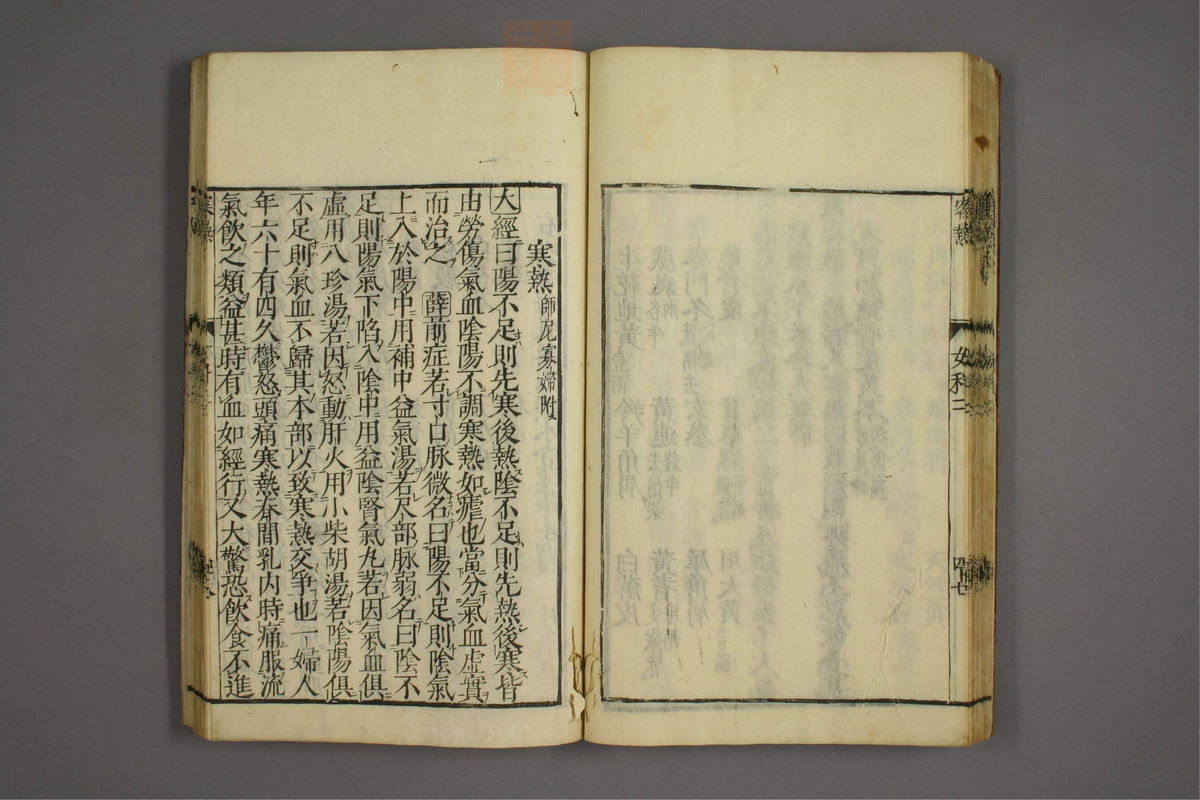 客熱
女科二
四十七
寒熱師尼寡婦附
大經曰陽不足則先寒後熱陰不足則先熱後寒皆
由勞傷氣血陰陽不調寒熱如瘧也當分氣血虛實
而治之 薛前症若寸口脉微名曰陽不足則陰氣
上入於陽中用補中益氣湯若尺部脉弱名曰陰不
足則陽氣下陷入陰中用益陰腎氣丸若因氣血俱
虛用八珍湯若因怒動肝火用小柴胡湯若陰陽俱
不足則氣血不歸其本部以致寒熱交爭也一婦人
年六十有四久鬱怒頭痛寒熱春間乳内時痛服流
氣飲之類益甚時有血如經行又大驚恐飲食不進